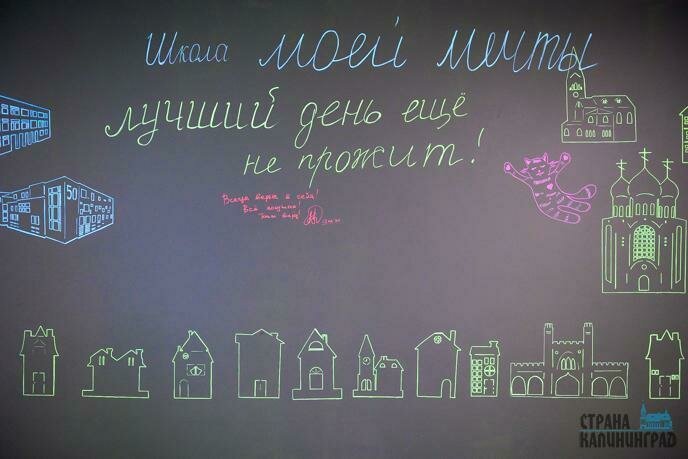 Школа моей мечты
лучший день ещё
не прожит!
50
Всегда верь в себя!
Всё
СТРАНА
КАЛИНИНГРАД